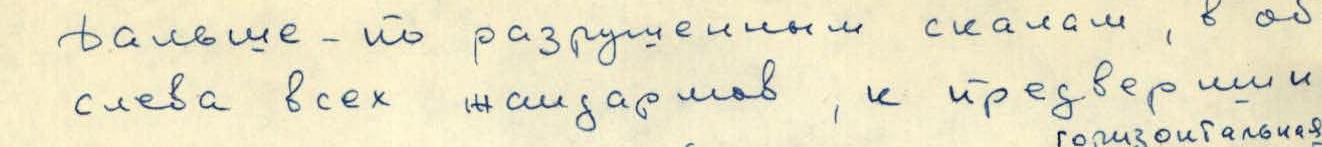 Дальше - по разрушенным скалам, в об
слева всех жандармов, к предвершин
горизонтальная